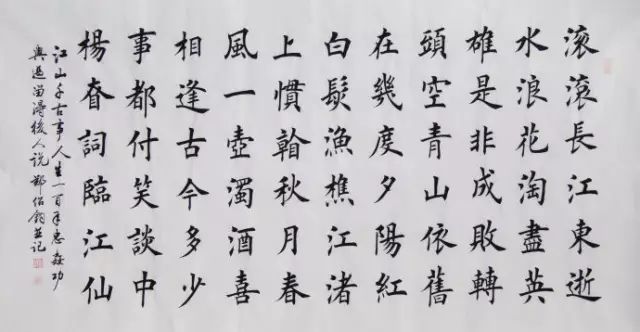 滚滚長江東逝
水浪花淘盡英
雄是非成敗轉
頭空青山依舊
在幾度夕陽紅
白髮漁樵江渚
上慣看秋月春
風一壺濁酒喜
相逢古今多少
事都付笑談中
楊昚詞臨江仙
江山千古事人生一百年忠姦功
與過留得後人说